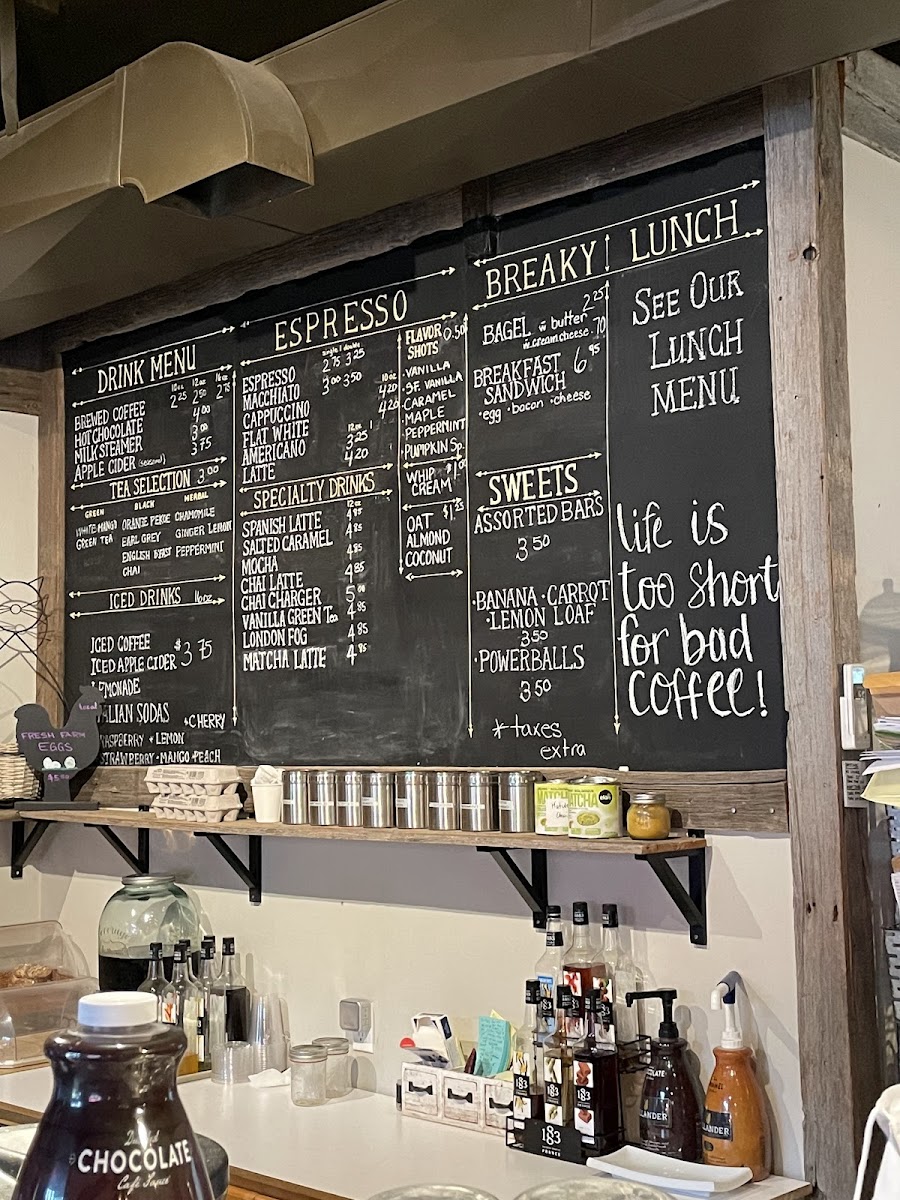 DRINK MENU
10oz 12oz 16oz
BREWED COFFEE 2.25 2.50 2.75
HOT CHOCOLATE 4.00
MILK STEAMER 3.00
APPLE CIDER (seasonal) 3.75
TEA SELECTION 3.00
GREEN BLACK HERBAL
WHITE MANGO ORANGE PEKOE CHAMOMILE
GREEN TEA EARL GREY GINGER LEMON
ENGLISH B'FAST PEPPERMINT
CHAI
ICED DRINKS 16oz
ICED COFFEE
ICED APPLE CIDER $3.75
LEMONADE
ITALIAN SODAS • CHERRY
RASPBERRY • LEMON
STRAWBERRY • MANGO • PEACH
ESPRESSO
single | double
ESPRESSO 2.75 3.25
MACCHIATO 3.00 3.50 10oz
CAPPUCCINO 4.20
FLAT WHITE 12oz 4.20
AMERICANO 3.25
LATTE 4.20
SPECIALTY DRINKS
12oz
SPANISH LATTE 4.85
SALTED CARAMEL 4.85
MOCHA 4.85
CHAI LATTE 4.85
CHAI CHARGER 5.00
VANILLA GREEN Tea 4.85
LONDON FOG 4.85
MATCHA LATTE 4.85
FLAVOR 0.50
SHOTS
• VANILLA
• S.F. VANILLA
• CARAMEL
• MAPLE
• PEPPERMINT
• PUMPKIN Sp.
WHIP $1.00
CREAM
OAT $1.25
ALMOND
COCONUT
BREAKY
BAGEL w butter 2.25
w. cream cheese .70
BREAKFAST 6.95
SANDWICH
• egg • bacon • cheese
SWEETS
ASSORTED BARS
3.50
• BANANA • CARROT
• LEMON LOAF
3.50
• POWERBALLS
3.50
*taxes
extra
LUNCH
SEE OUR
LUNCH
MENU
life is
too short
for bad
coffee!
local
FRESH FARM
EGGS
$5.00
MATCHA
MATCHA
CHOCOLATE
Café Sauce
183
183
183
183
FRANCE
CHOCOLATE
HOLLANDER
HOLLANDER